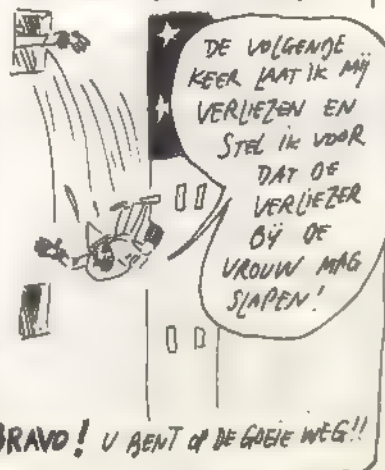 DE VOLGENDE
KEER LAAT IK MIJ
VERLIEZEN EN
STEL IK VOOR
DAT DE
VERLIEZER
BIJ DE
VROUW MAG
SLAPEN!
BRAVO! U BENT OP DE GOEIE WEG!!